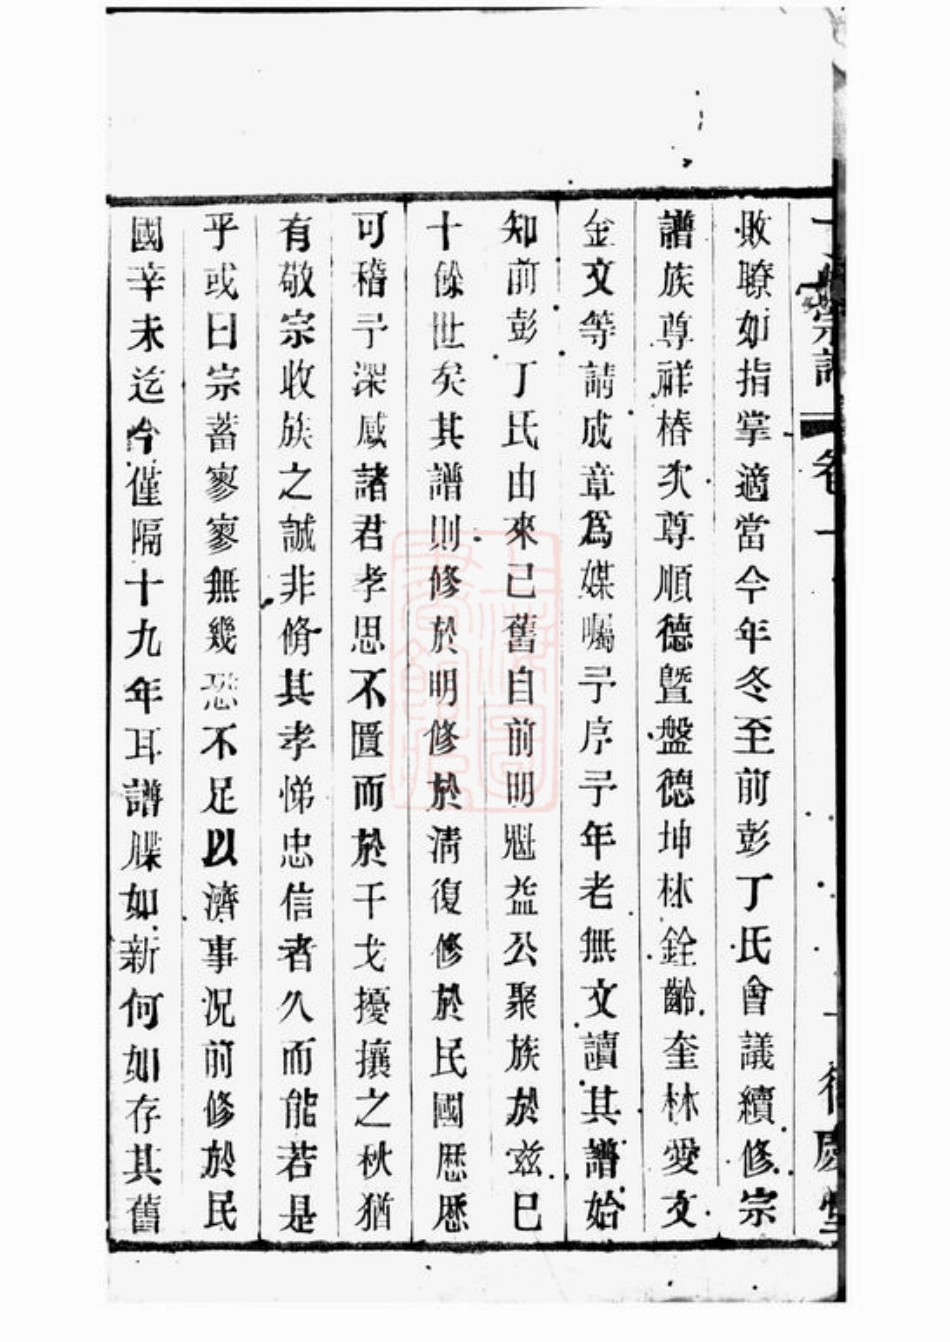 宗譜 卷一
敗瞭如指掌適當今年冬至前彭丁氏會議續修宗
譜族尊祥椿次尊順德暨盤德坤林銓齡奎林愛文
金文等請成章為媒囑予序予年老無文讀其譜始
知前彭丁氏由來已舊自前明魁益公聚族於兹已
十餘世矣其譜則修於明修於清復修於民國歷歷
可稽予深感諸君孝思不匱而於干戈擾攘之秋猶
有敬宗收族之誠非脩其孝悌忠信者久而能若是
乎或曰宗蓄寥寥無幾恐不足以濟事況前修於民
國辛未迄今僅隔十九年耳譜牒如新何如存其舊